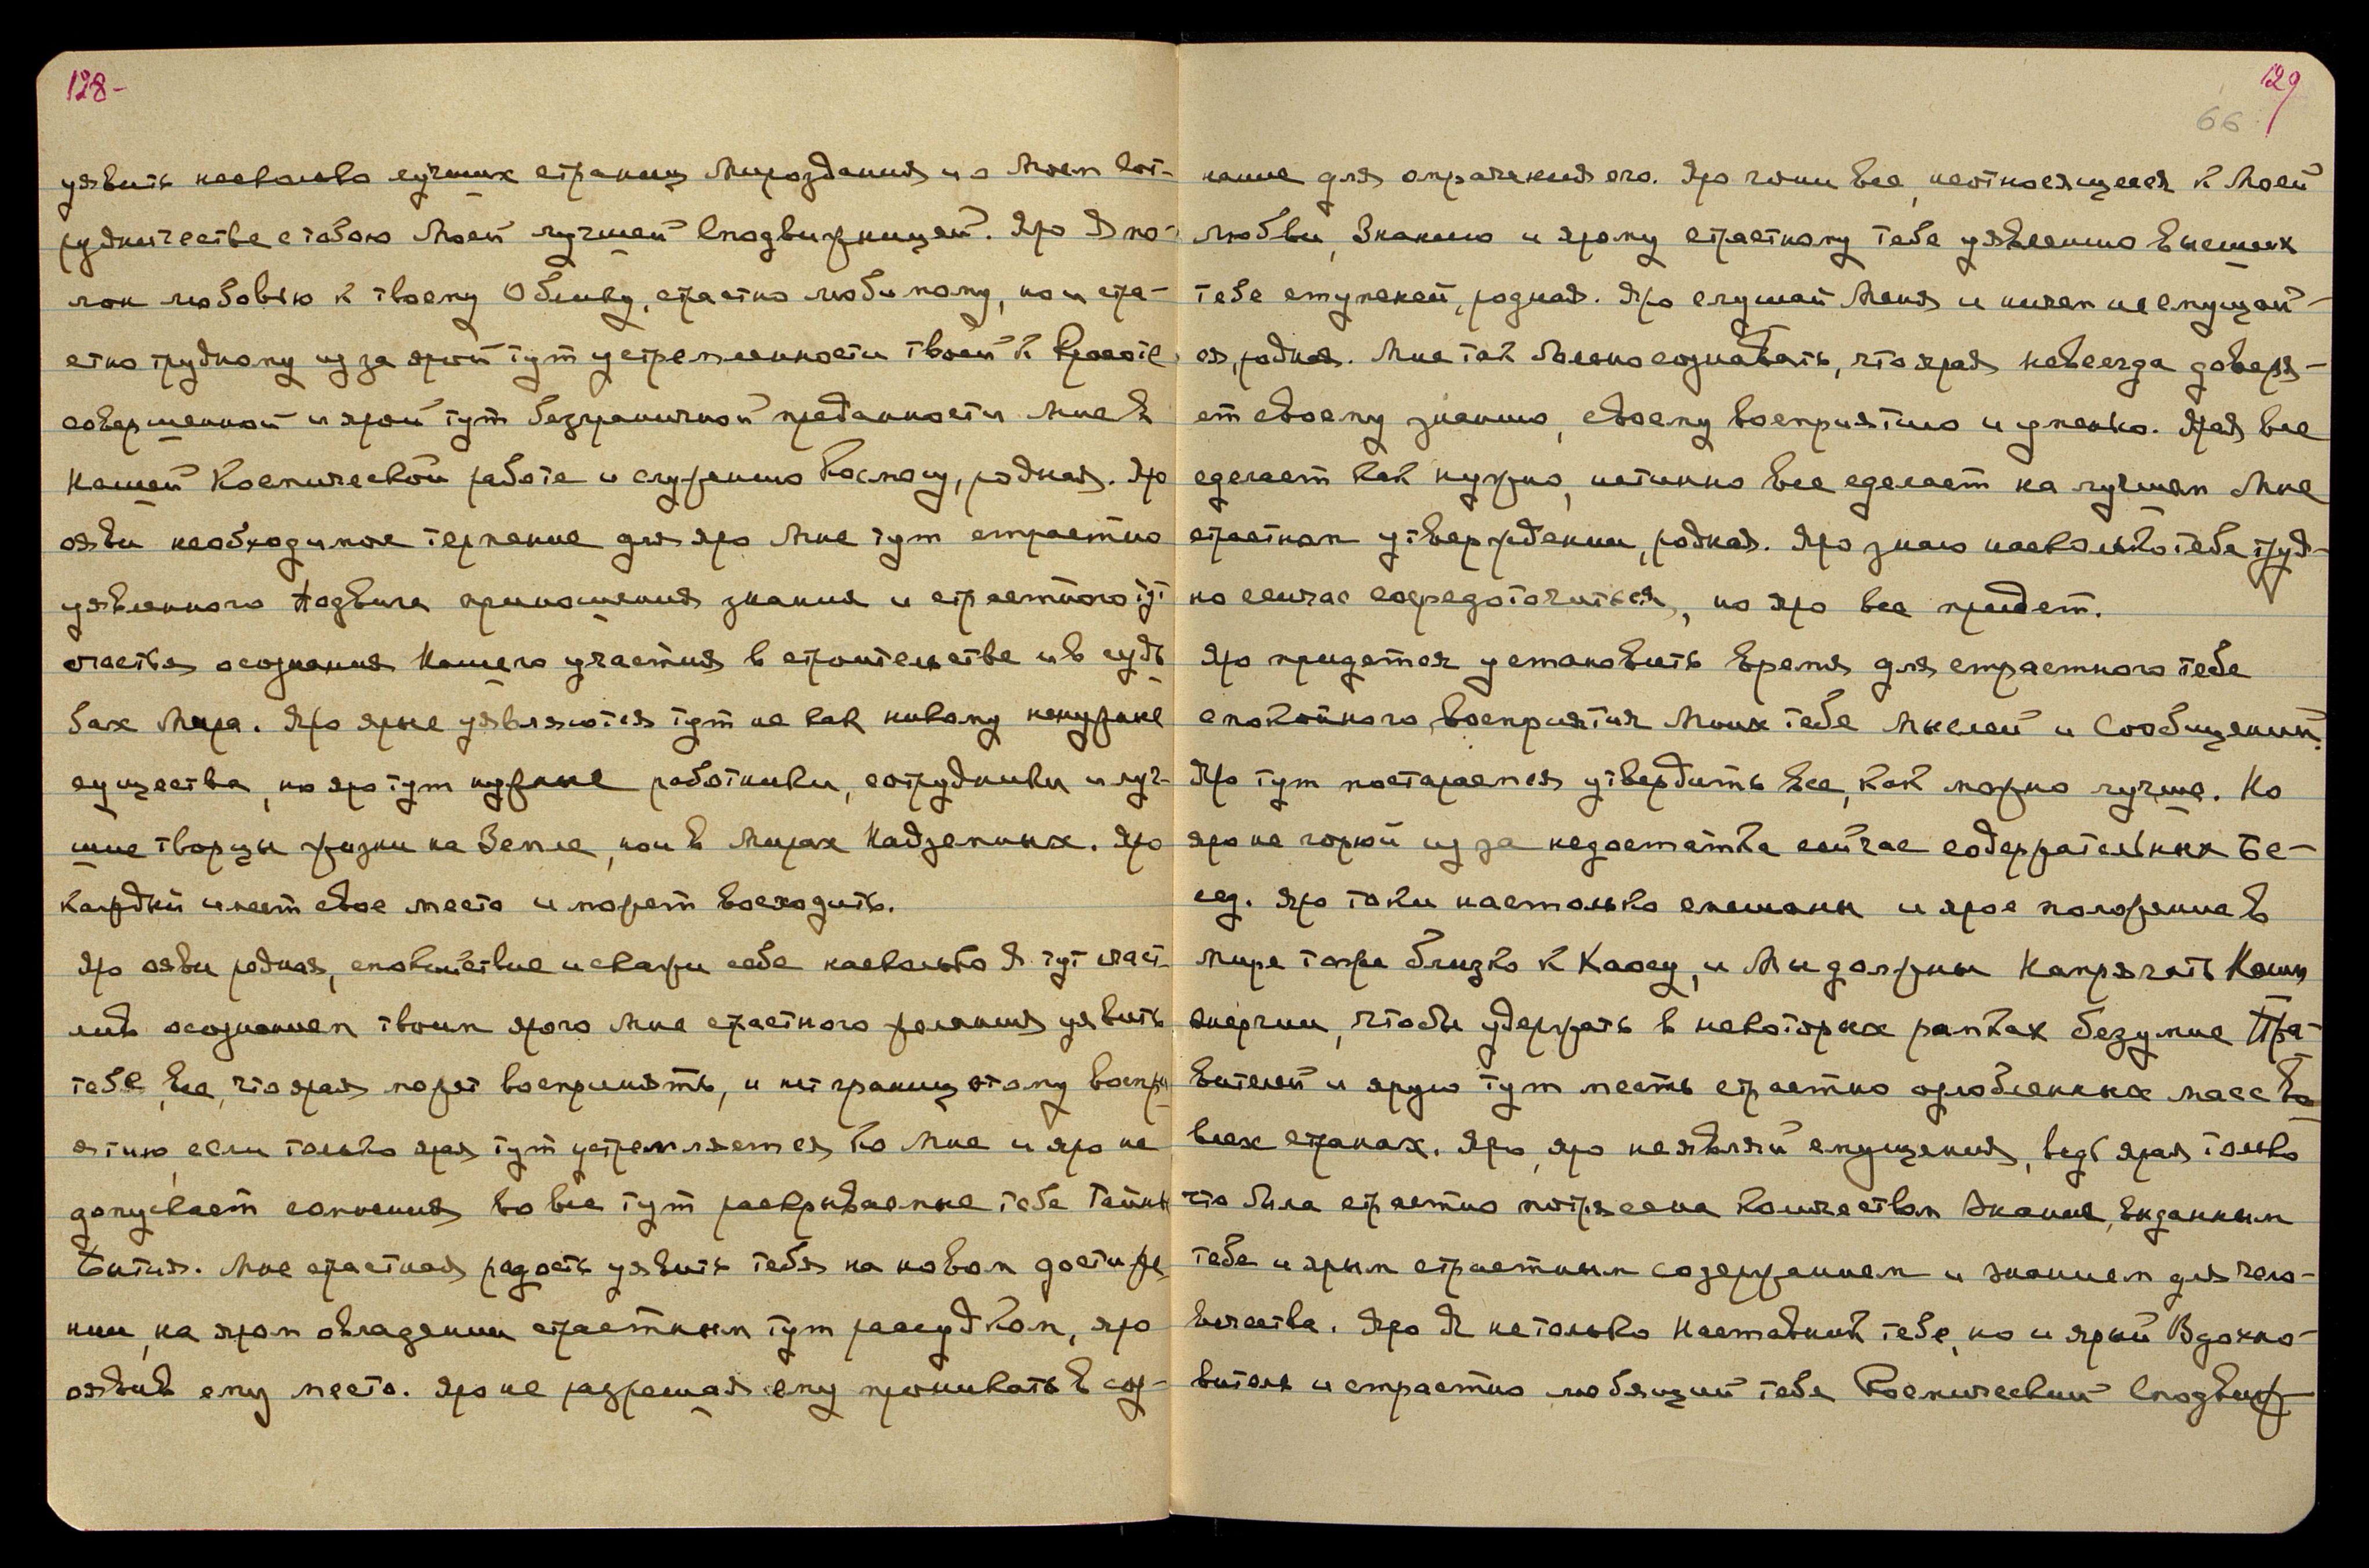 128-
уявить несколько лучших страниц Мироздания и о Моем сот-
рудничестве с тобою Моей лучшей Сподвижницей. Яро Я по-
лон любовью к твоему Облику, страстно любимому, но и стра-
стно трудному из за ярой тут устремленности твоей к Красоте
совершенной и ярой тут безграничной преданности Мне в
Нашей Космической работе и служению Космосу, родная. Яро
ояви необходимое терпение для яро Мне тут страстно
уявленного Подвига приношения знания и страстного тут
счастья осознания Нашего участия в строительстве и в судь
бах Мира. Яро ярые уявляются тут не как никому ненужные
существа, но яро тут нужные работники, сотрудники и луч-
шие творцы жизни на Земле, но и в Мирах Надземных. Яро
каждый имеет свое место и может восходить.
Яроояви родная, спокойствие и скажи себе насколько Я тут счаст-
лив осознанием твоим ярого Мне страстного желания уявить
тебе, все, что ярая может воспринять, и нет границ этому воспри
ятию, если только ярая тут устремляется ко Мне и яро не
допускает сомнения во все тут раскрываемые тебе Тайны
Бытия. Мне страстная радость уявить тебя на новом достиже
нии, на яром овладении страстным тут рассудком, яро
оявив ему место. Яро не разрешая ему проникать в соз-
129
66
нание для омрачения его. Яро гони все, неотносящееся к Моей
любви, Знанию и ярому страстному тебе уявлению высших
тебе ступеней, родная. Яро слушай Меня и ничем не смущай-
ся, родная. Мне так больно сознавать, что ярая не всегда доверя-
ет своему знанию, своему восприятию и уменью. Ярая все
сделает как нужно, истинно все сделает на лучшем Мне
страстном утверждении, родная. Яро знаю насколько тебе труд-
но сейчас сосредоточиться, но яро все придет.
Яро придется установить время для страстного тебе
спокойного восприятия Моих тебе Мыслей и Сообщений.
Яро тут постараемся утвердить все, как можно лучше. Но
яро не горюй из за недостатка сейчас содержательных Бе-
сед. Яро токи настолько смешаны и ярое положение в
мире тоже близко к Хаосу, и Мы должны Напрягать Наши
энергии, чтобы удержать в некоторых рамках безумие Пра-
вителей и ярую тут месть страстно озлобленных масс во
всех странах. Яро, яро не являй смущения, ведь ярая только
что была страстно потрясена количеством Знания, выданным
тебе и ярым страстным содержанием и знанием для чело-
вечества. Яро Я не только Наставник тебе, но и ярый Вдохно-
витель и страстно любящий тебя Космический Сподвиж-